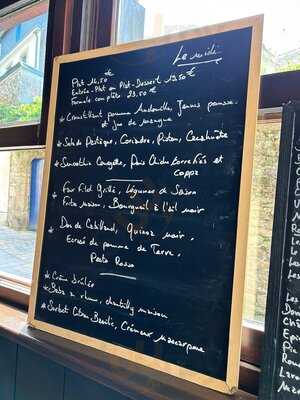 Le midi
Plat 16,50
Entrée-Plat ou Plat-Dessert 19,50€
Formule complète 23,50€
* Croustillant pomme Andouille, Jeunes pousses
et jus de mangue
* Salade de Pastèque, Coriandre, Piston, Cacahuète
* Smoothie Courgette, Pois Chiche torréfiés et
coppa
* Faux Filet Grillé, Légumes de Saison
Frite maison, Bourgueil à l'ail noir
* Dos de Cabillaud, Quinoa noir,
Ecrasé de pomme de Terre,
Pesto Rosso
* Crème brûlée
* Baba au rhum, chantilly maison
* Sorbet Citron Basilic, Crémeux mascarpone